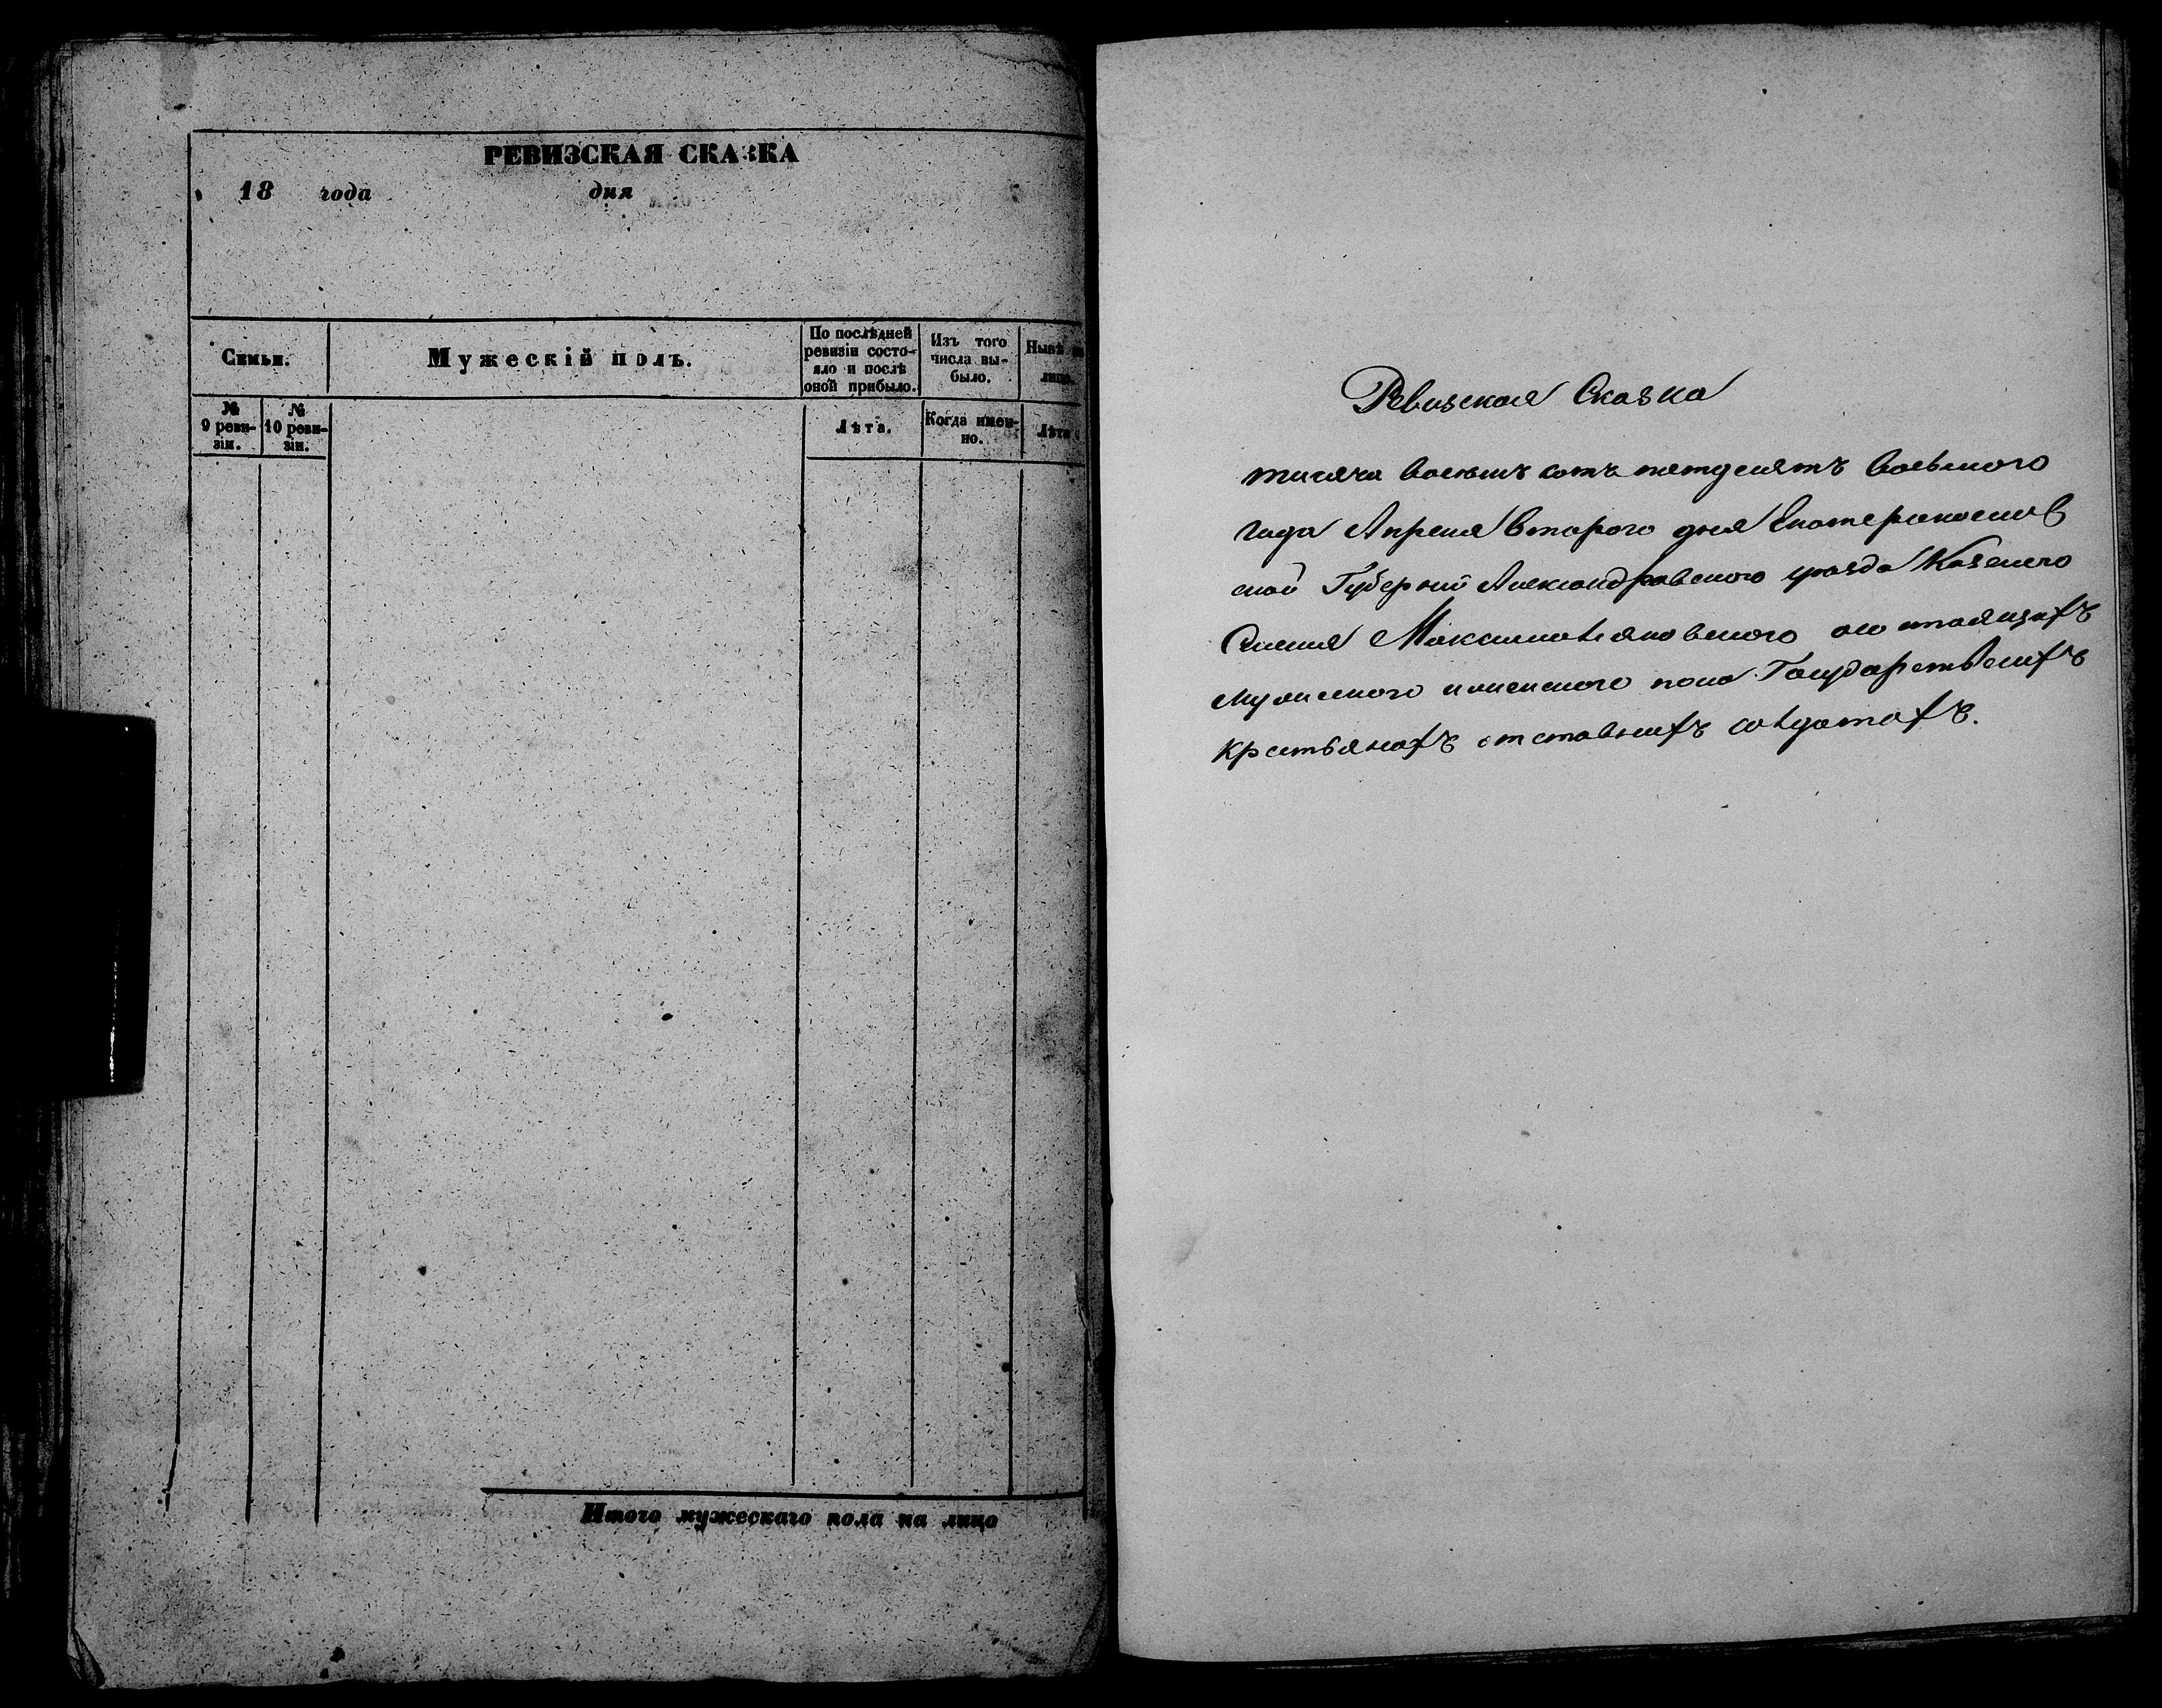 РЕВИЗСКАЯ СКАЗКА
18 года дня
Семьи.
Мужескій полъ.
По послѣдней ревизіи состояло и послѣ оной прибыло.
Изъ того числа выбыло.
Нынѣ на лицо.
№ 9 ревизіи.
№ 10 ревизіи.
Лѣта.
Когда именно.
Лѣта
Итого мужескаго пола на лицо
Ревизская Сказка
тисяча восемъ сотъ петдесятъ восьмого
года Апреля второго дня Екатеринослав
ской Губерніи Александравского уезда Казеного
Селения Максимовского состоящихъ
мужеского и женского пола Государственихъ
крстьянахъ отставнихъ солдатахъ.